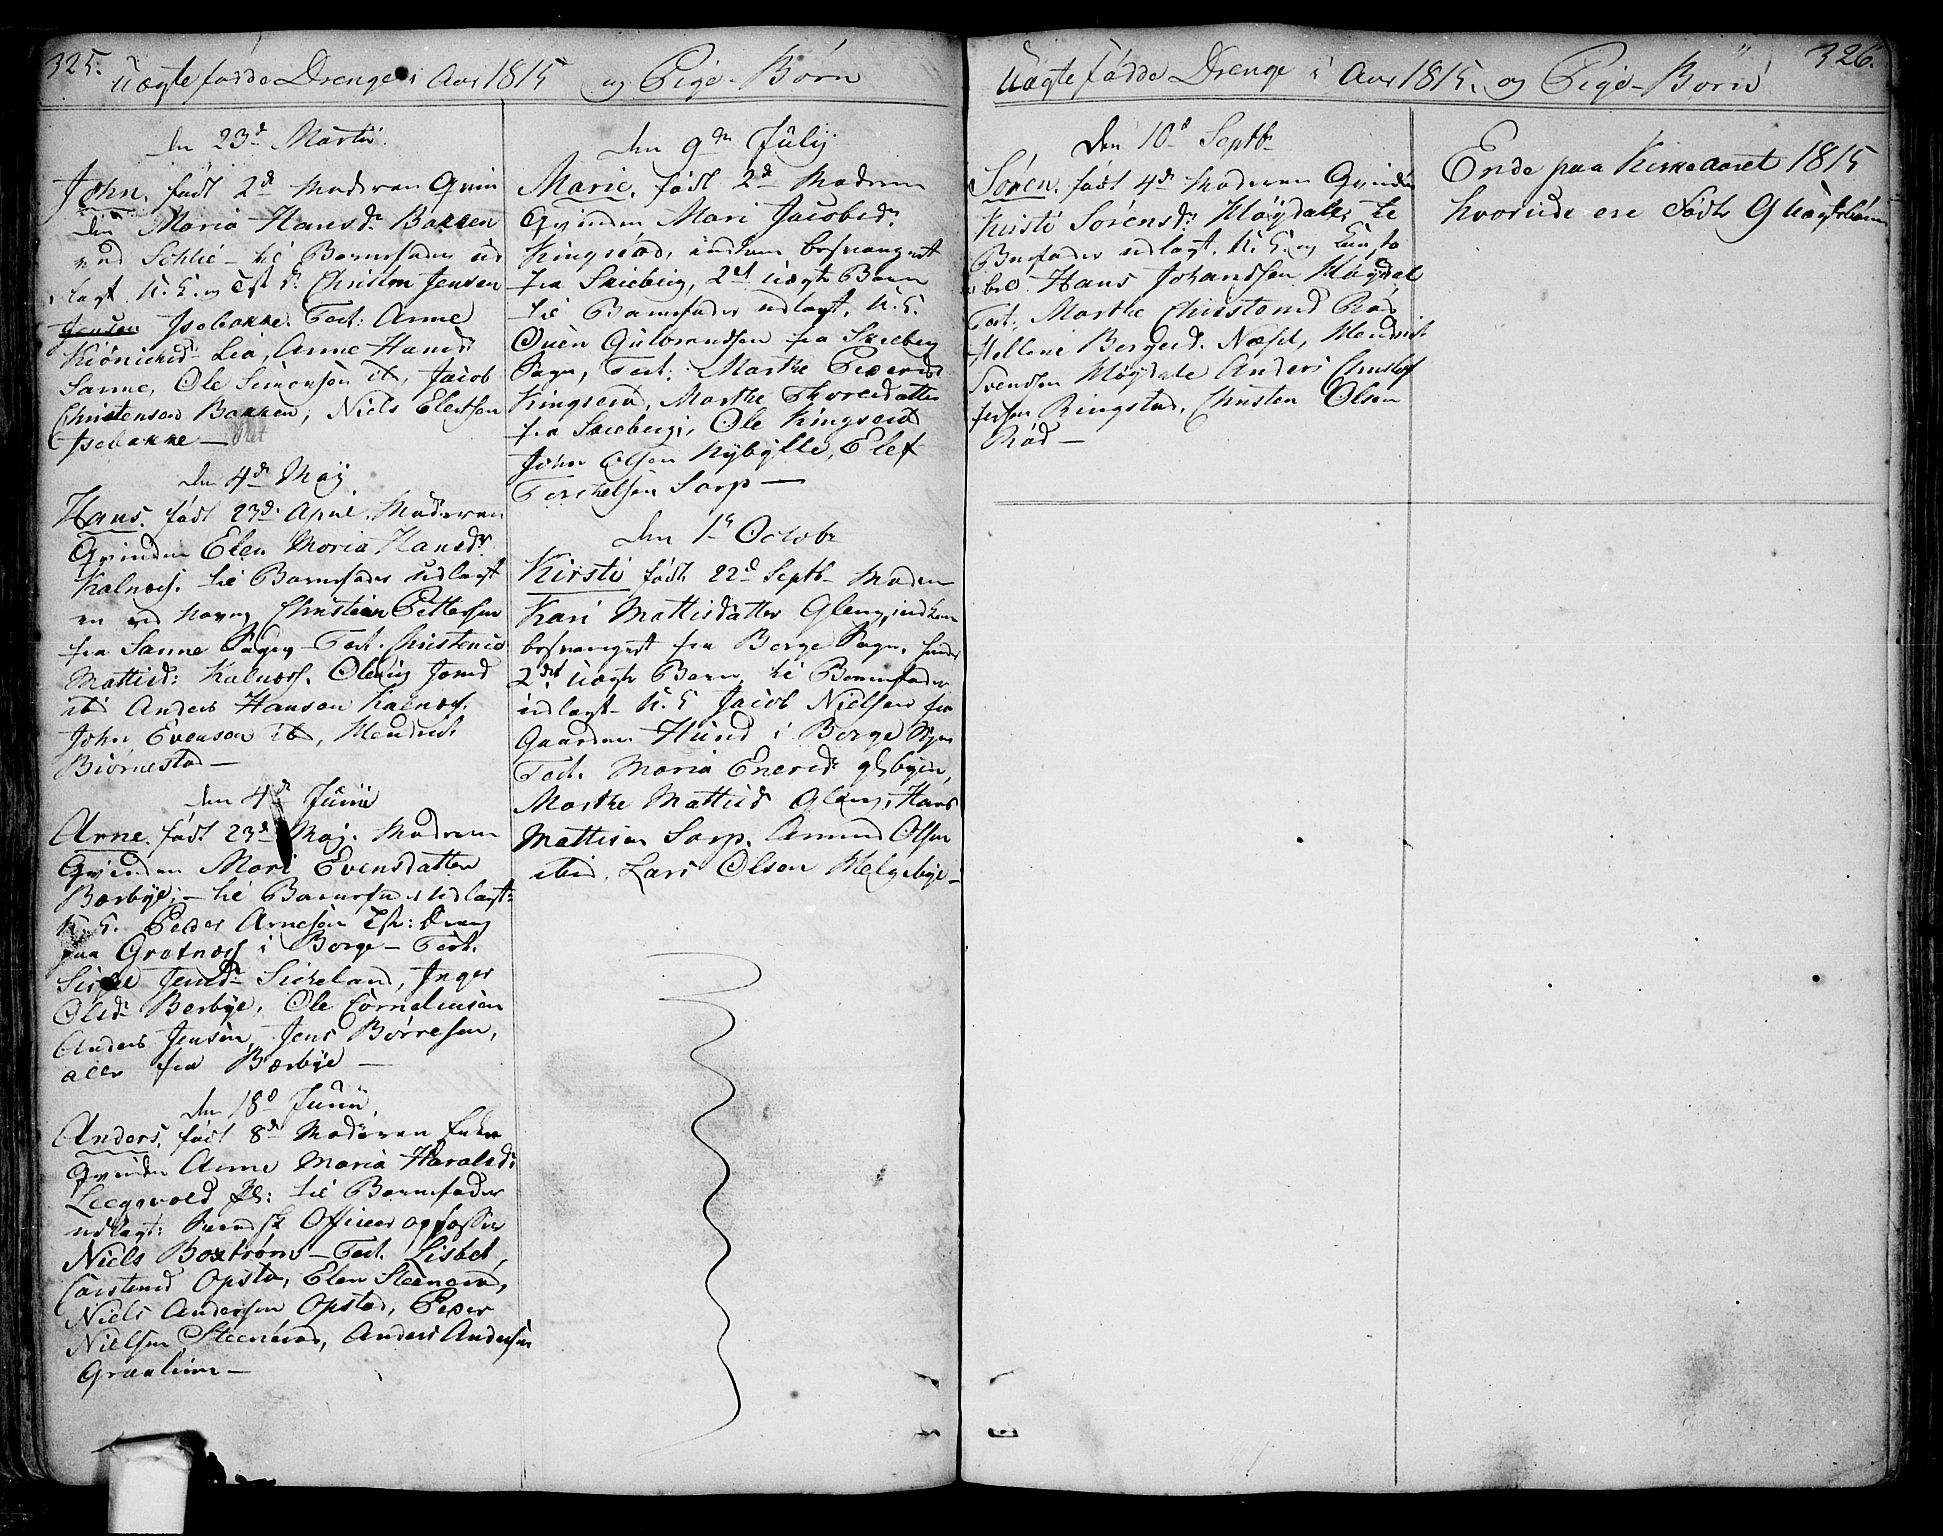 325.
Uægte fødde Drenge i Aar 1815 og Pige-Børn
den 23d Martii
John. født 2d Moderen Qvin
den Maria Hansdr Bakken
ved Sohlie - til Barnefader ud
lagt. U. K. og Christen Jensen
Jensen Isebakke. Test: Anne
Lia, Anne Hansdr
Sanne, Ole Simensen ib, Jacob
Christensen Bakken, Niels Elertsen
Isebakke -
den 4de May
Hans. født 23d April. Moderen
Qvinden Elen Maria Hansdr
Kalnæs. til Barnefader udlagt
en ved Navn Christian Pettersen
fra Sanne Sogn - Test. Christenid
Mattisd: Kalnæs. Olaug Jonsd
ibd Anders Hansen Kalnæs.
John Evensen ib, Hendrich
Biørnestad -
den 4d Junii
Arne. født 23d May. Moderen
Qvinden Mari Evensdatter
Bærbye; - til Barnefader udlagt:
U. K. Peder Arnesen Drang
paa Grotnæs i Borge - Test.
Jensdr Sikeland, Inger
Olsdr Berbye, Ole Corneliusen
Anders Jensen, Jens Børresen,
alle fra Bærbye -
den 18d Junii
Anders. født 8d Moderen Enke
Qvinden Anne Maria Haralsdr
til Barnefader
udlagt: Svensk Officeer opfasser
Niels Boxtrøm - Test. Lisbet
Carstensd Opstad, Elen Steenerød,
Niels Andersen Opstad, Peder
Nielsen Steenerød, Anders Andersen
Graalum -
den 9de July
Marie. født 2d Moderen
Qvinden Mari Jacobsdr
Kingsrød, indkom besvangret
fra Skieberg, 2det Uægte Barn
til Barnefader udlagt. U. K.
Ouen Gulbrandsen fra Skieberg
Sogn, Test: Marthe Pedersd
Kingsrød, Marthe Thoresdatter
fra Skieberg, Ole Kingsrød
John Olsen Nybylle, Elef
Torchelsen Sarp -
den 1te Octobr
Kirsti født 22d Septb - Moderen
Kari Mattisdatter Gleng, indkom
besvangret fra Borge Sogn, hendes
2det Uægte Barn, til Barnefader
udlagt - U. K. Jacob Nielsen fra
Gaarden Hund i Borge Sogn
Test. Maria Enersdr
Marthe Mattisd Gleng, Hans
Mattisen Sarp. Amund Olsen
ibid. Lars Olsen Helgebye -
326.
Uægte fødde Drenge i Aar 1815. og Pige-Børn
Den 10d Septbr
Søren. født 4d Moderen Qvinden
Kirsti Sørensdr Høydahl, til
Barnefader udlagt. U. K. og
Hans Johandsen Høydal
Test: Marthe Christensd Rød
Hellene Bergersd. Næss, Hendrich
Svendsen Høydale Anders Christof
fersen Ringstad, Christen Olsen
Rød -
Ende paa Kirkeaaret 1815
hvorude ere Fødte 9 Uægte børn